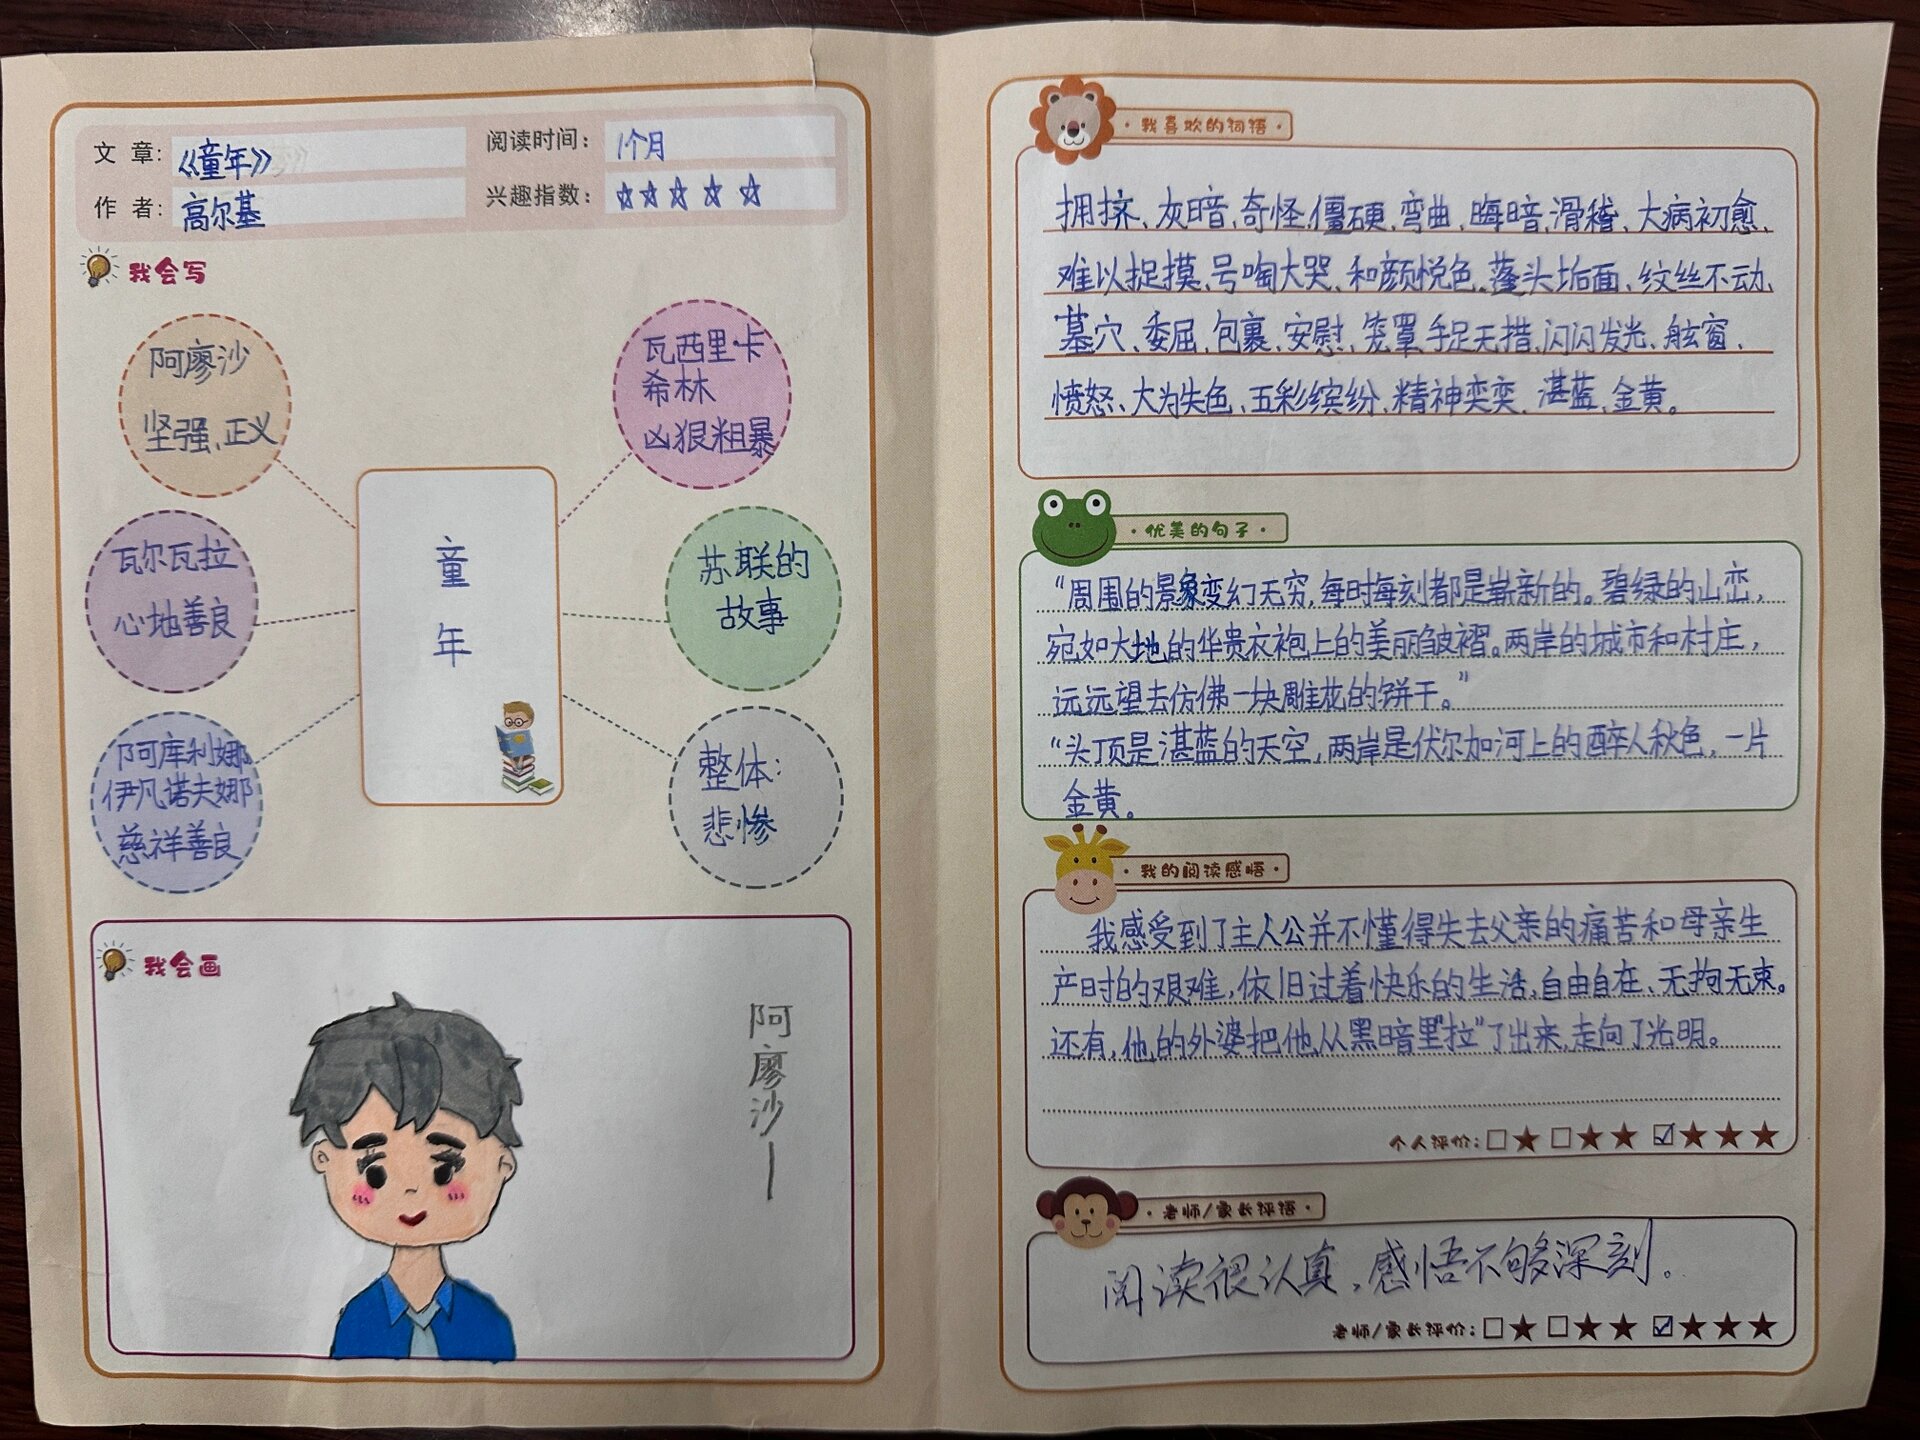 文 章: 《童年》
阅读时间: 1个月
作 者: 高尔基
兴趣指数: ☆☆☆☆☆
我会写
阿廖沙
坚强、正义
瓦西里·卡
希林
凶狠粗暴
瓦尔瓦拉
心地善良
童
年
苏联的
故事
阿库利娜
伊凡诺夫娜
慈祥善良
整体:
悲惨
我会画
阿廖沙—
·我喜欢的词语·
拥挤、灰暗、奇怪、僵硬、弯曲、晦暗、滑稽、大病初愈、
难以捉摸、号啕大哭、和颜悦色、蓬头垢面、纹丝不动、
墓穴、委屈、包裹、安慰、笼罩、手足无措、闪闪发光、舷窗、
愤怒、大为失色、五彩缤纷、精神奕奕、湛蓝、金黄。
·优美的句子·
“周围的景象变幻无穷,每时每刻都是崭新的。碧绿的山峦,
宛如大地的华贵衣袍上的美丽皱褶。两岸的城市和村庄,
远远望去仿佛一块雕花的饼干。”
“头顶是湛蓝的天空,两岸是伏尔加河上的醉人秋色,一片
金黄。
·我的阅读感悟·
我感受到了主人公并不懂得失去父亲的痛苦和母亲生
产时的艰难,依旧过着快乐的生活,自由自在、无拘无束。
还有,他的外婆把他从黑暗里“拉”了出来,走向了光明。
个人评价:□★ □★★ ☑★★★
·老师/家长评语·
阅读很认真,感悟不够深刻。
老师/家长评价:□★ □★★ ☑★★★